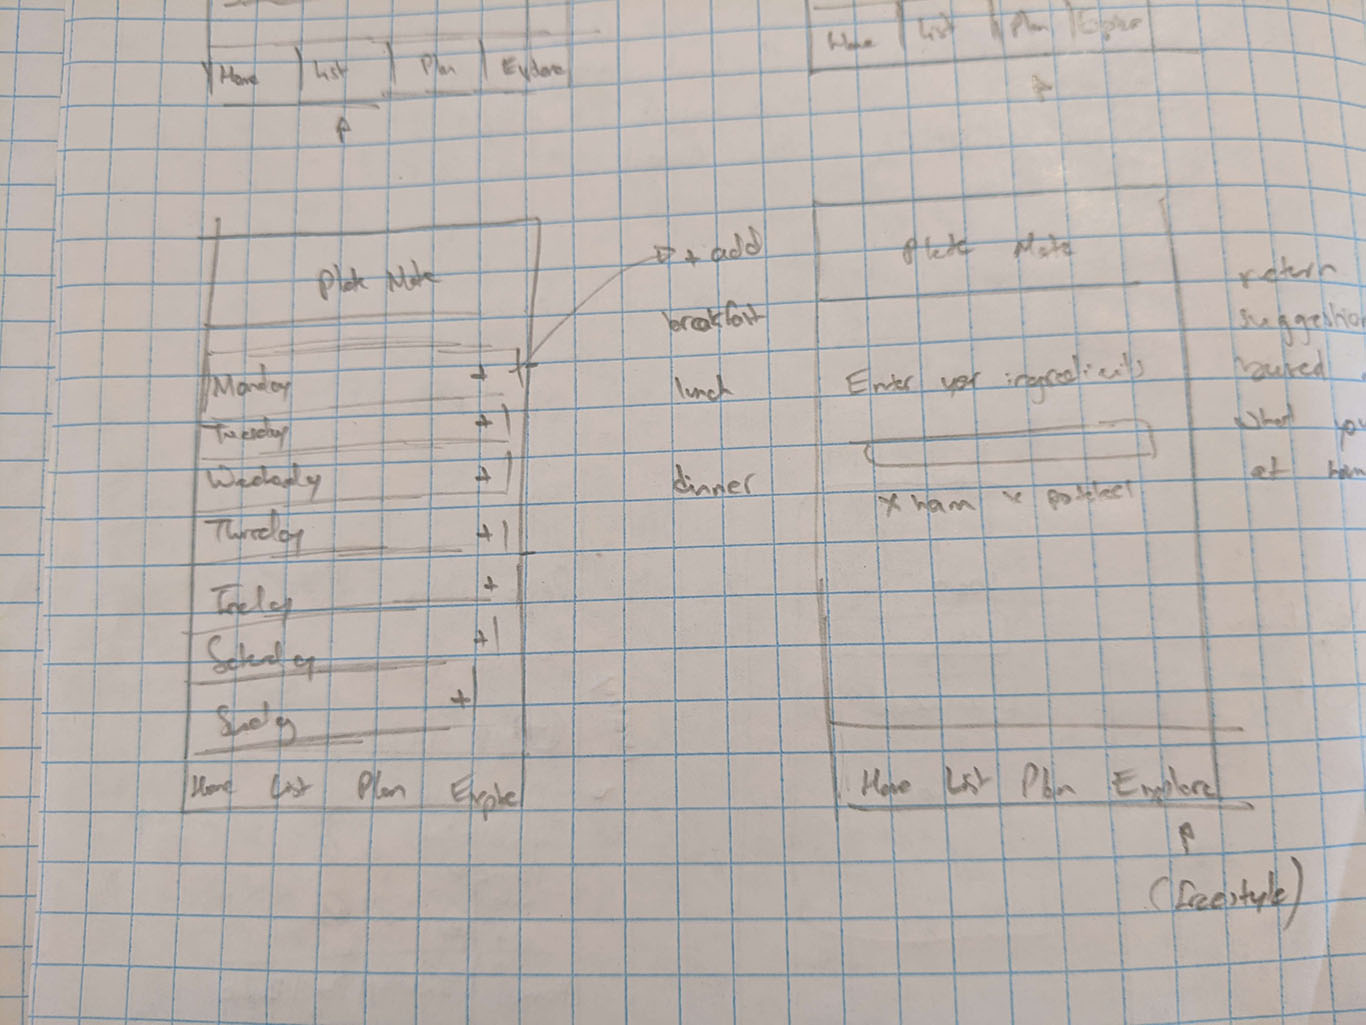 Home List Plan Explore
Home List Plan Explore
Plate Mate
Monday +
Tuesday +
Wednesday +
Thursday +
Friday +
Saturday +
Sunday +
Home List Plan Explore
+ add
breakfast
lunch
dinner
Plate Mate
Enter your ingredients
x ham x
Home List Plan Explore
(freestyle)
return
suggestion
based
what you
at home